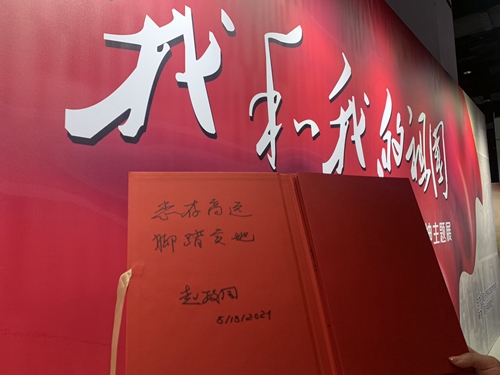 我和我的祖国
主题展
志存高远
脚踏实地
赵政国
5/10/2021